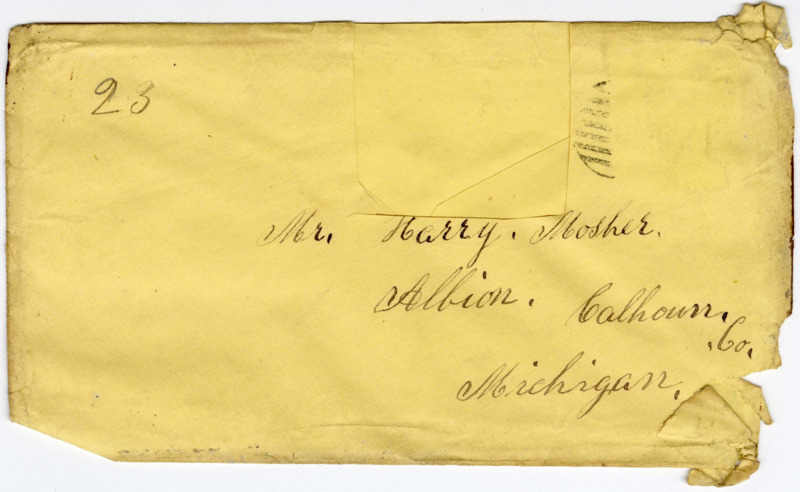 23
Mr. Harry. Mosher.
Albion. Calhoun.
Co.
Michigan.